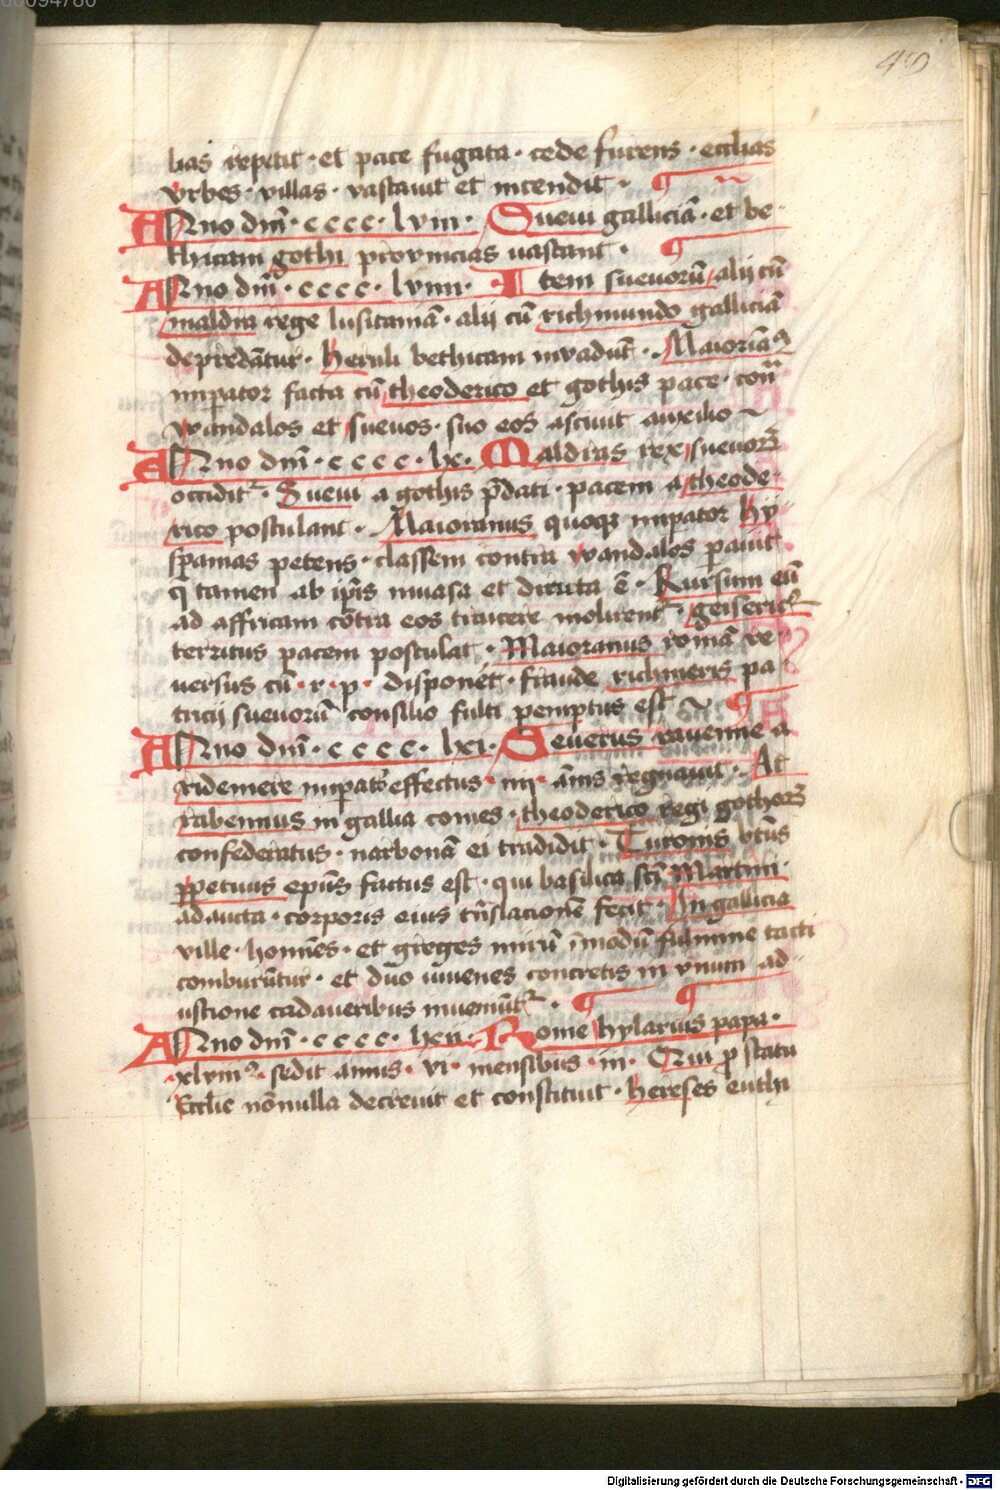 00094780
49
lias repetit · et pace fugata · cede furens · ecclias
vrbes · villas · vastauit et incendit ·
Anno dm̄i · cccc · lviii · Sueui galliciā · et be-
thicam gothi prouincias uastant ·
Anno dm̄i · cccc · lviiii · Item sueuorū alij cū
maldra rege lusitaniā · alij cū richmundo galliciā
depredātur · heruli bethicam inuadūt · Maiorianꝰ
imꝑator facta cū theoderico et gothis pace · cont̄
wandalos et sueuos · suo eos asciuit auxilio ~
Anno dm̄i · cccc · lx · Maldras rex sueuorꝝ
occiditur · Sueui a gothis p̄dati · pacem a theode-
rico postulant · Maioranus quoqꝫ imꝑator hy-
spanias petens · classem contra wandalos ꝑauit
q̄ tamen ab ip̄is inuasa et diruta ē · Rursum cū
ad affricam cōtra eos traicere molirent᷑ · geiseric᷒
territus pacem postulat · Maioranus romā re-
uersus cū · r · p · disponēt · fraude richmeris pa-
tricij sueuorū consilio fulti ꝑemptus est ~
Anno dm̄i · cccc · lxi · Seuerus rauenne a
ridemere imꝑator effectus · iiij · ānis regnauit · At
rabennus in gallia comes · theoderico regi gothorꝝ
confederatus · narbonā ei tradidit · Turonis
ꝑpetuus ep̄us factus est · qui basilica scī Martini
adaucta · corporis eius trāslacionē fecit · In gallicia
ville · homīes · et greges mirū īmodū fulmine tacti
comburūtur · et duo iuuenes concretis in vnum ad-
ustione cadaueribus inueniūtur ·
Anno dm̄i · cccc · lxii · Rome hylarius papa ·
xlviiiꝰ · sedit annis · vi · mensibus · iii · Qui ꝓ statu
Ecclīe nōnulla decreuit et constituit · hereses euthi
Digitalisierung gefördert durch die Deutsche Forschungsgemeinschaft - DFG